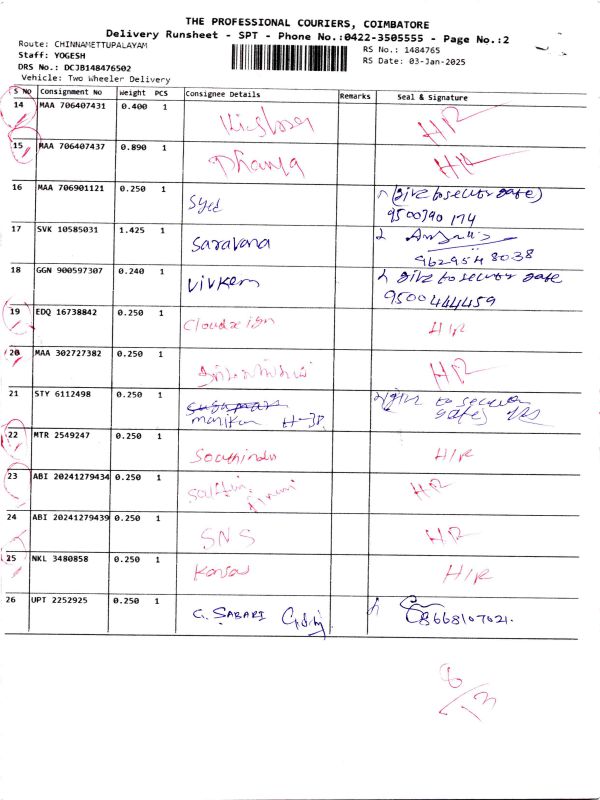 THE PROFESSIONAL COURIERS, COIMBATORE
Delivery Runsheet - SPT - Phone No.:0422-3505555 - Page No.:2
Route: CHINNAMETTUPALAYAM
RS No.: 1484765
Staff: YOGESH
RS Date: 03-Jan-2025
DRS No.: DCJB148476502
Vehicle: Two Wheeler Delivery
S No Consignment No Weight PCS Consignee Details Remarks Seal & Signature
14 MAA 706407431 0.400 1 HR
15 MAA 706407437 0.890 1 Dhanya HR
16 MAA 706901121 0.250 1 Syed (give to secur gate)
9500790174
17 SVK 10585031 1.425 1 Saravana
9629548038
18 GGN 900597307 0.240 1 Vivkem give to secur gate
9500444459
19 EDQ 16738842 0.250 1 H/R
20 MAA 302727382 0.250 1 HR
21 STY 6112498 0.250 1 to
22 MTR 2549247 0.250 1 H/R
23 ABI 20241279434 0.250 1 HR
24 ABI 20241279439 0.250 1 SNS HR
25 NKL 3480858 0.250 1 H/R
26 UPT 2252925 0.250 1 G. SABARI 8668107021.
8
13